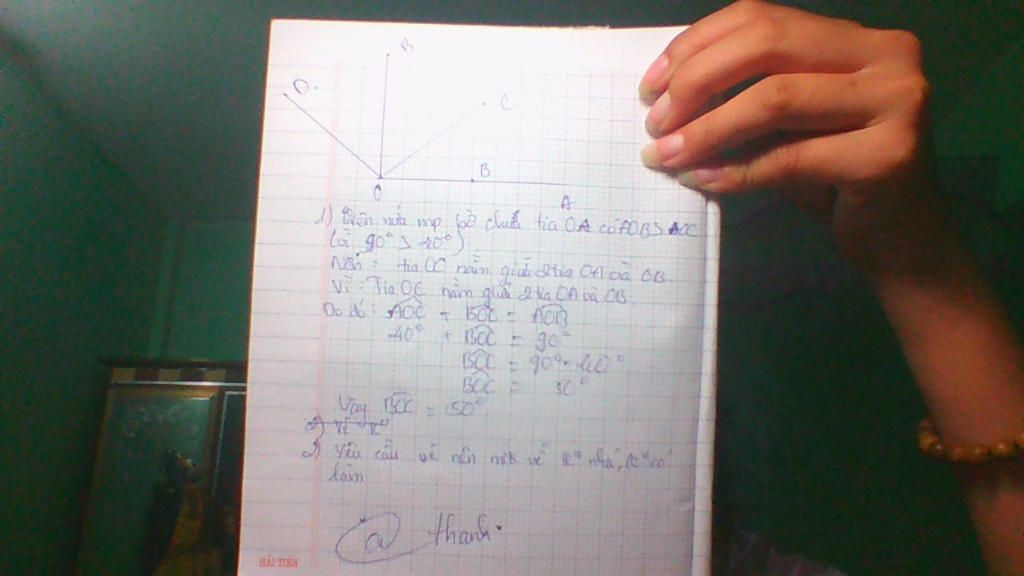 B
D
C
B
O
A
1) Trên nửa mp bờ chứa tia OA có AOB > AOC
(vì 90° > 40°)
Nên: tia OC nằm giữa 2 tia OA và OB
Vì: Tia OC nằm giữa 2 tia OA và OB
Do đó: AOC + BOC = AOB
40° + BOC = 90°
BOC = 90° - 40°
BOC = 50°
Vậy BOC = 50°
2) Vẽ
2) Yêu cầu vẽ nên mik vẽ nhá, có
làm
@ thanh
HẢI TIẾN